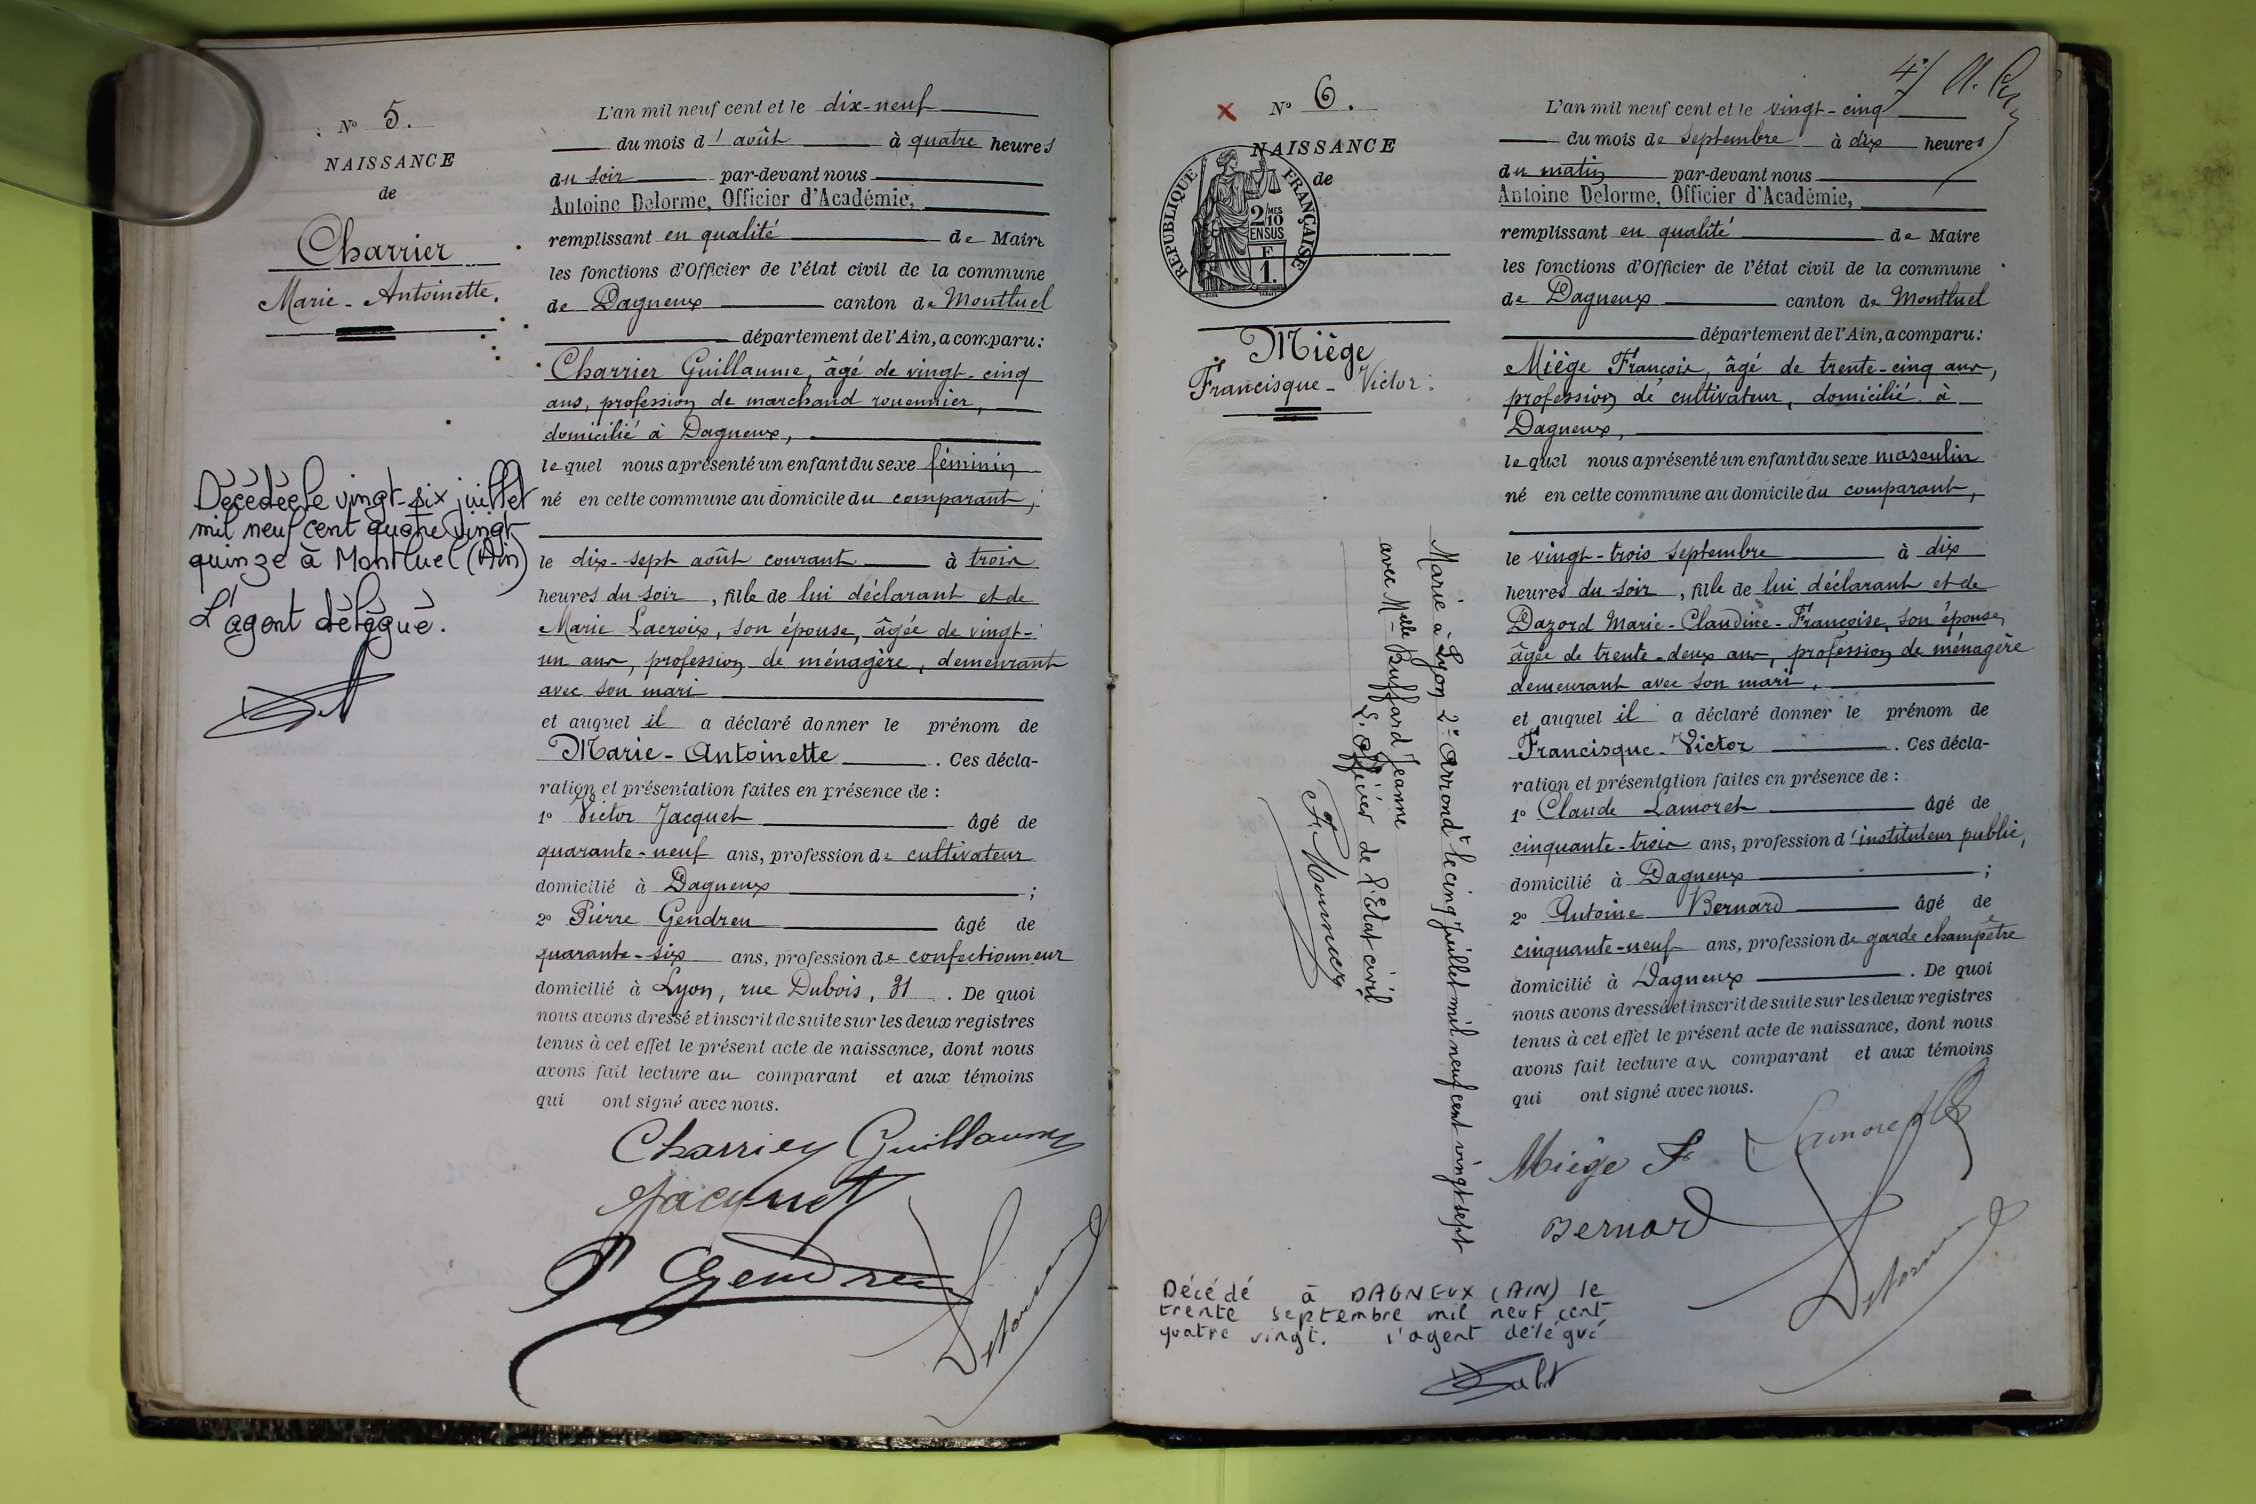 N° 5.
NAISSANCE
de
Charrier
Marie-Antoinette.
Décédée le vingt-six juillet
mil neuf cent quatre vingt
quinze à Montluel (Ain)
L'agent délégué.
L'an mil neuf cent et le dix-neuf
du mois d'août à quatre heures
du soir par-devant nous
Antoine Delorme, Officier d'Académie,
remplissant en qualité de Maire
les fonctions d'Officier de l'état civil de la commune
de Dagneux canton de Montluel
département de l'Ain, a comparu:
Charrier Guillaume, âgé de vingt-cinq
ans, profession de marchand rouennier,
domicilié à Dagneux,
lequel nous a présenté un enfant du sexe féminin
né en cette commune au domicile du comparant,
le dix-sept août courant à trois
heures du soir, fille de lui déclarant et de
Marie Lacroix, son épouse, âgée de vingt-
un ans, profession de ménagère, demeurant
avec son mari
et auquel il a déclaré donner le prénom de
Marie-Antoinette. Ces décla-
ration et présentation faites en présence de :
1° Victor Jacquet âgé de
quarante-neuf ans, profession de cultivateur
domicilié à Dagneux ;
2° Pierre Gendreu âgé de
quarante-six ans, profession de confectionneur
domicilié à Lyon, rue Dubois, 31. De quoi
nous avons dressé et inscrit de suite sur les deux registres
tenus à cet effet le présent acte de naissance, dont nous
avons fait lecture au comparant et aux témoins
qui ont signé avec nous.
Charrier Guillaume
Jacquet
P Gendreu
Delorme
4
N° 6.
NAISSANCE
de
RÉPUBLIQUE FRANÇAISE
2/MES
10
EN SUS
F
1.
Miège
Francisque-Victor.
Marié à Lyon 2e arrondt le cinq Juillet mil neuf cent vingt sept
avec Melle Buffard Jeanne
L'Officier de l'Etat civil
Décédé à DAGNEUX (AIN) le
trente septembre mil neuf cent
quatre vingt. l'agent délégué
L'an mil neuf cent et le vingt-cinq
du mois de septembre à dix heures
du matin par-devant nous
Antoine Delorme, Officier d'Académie,
remplissant en qualité de Maire
les fonctions d'Officier de l'état civil de la commune
de Dagneux canton de Montluel
département de l'Ain, a comparu:
Miège François, âgé de trente-cinq ans,
profession de cultivateur, domicilié à
Dagneux,
lequel nous a présenté un enfant du sexe masculin
né en cette commune au domicile du comparant,
le vingt-trois septembre à dix
heures du soir, fille de lui déclarant et de
Dazord Marie-Claudine-Françoise, son épouse,
âgée de trente-deux ans, profession de ménagère
demeurant avec son mari,
et auquel il a déclaré donner le prénom de
Francisque-Victor. Ces décla-
ration et présentation faites en présence de :
1° Claude Lamoret âgé de
cinquante-trois ans, profession d'instituteur public,
domicilié à Dagneux ;
2° Antoine Bernard âgé de
cinquante-neuf ans, profession de garde champêtre
domicilié à Dagneux. De quoi
nous avons dressé et inscrit de suite sur les deux registres
tenus à cet effet le présent acte de naissance, dont nous
avons fait lecture au comparant et aux témoins
qui ont signé avec nous.
Miège F.
Lamoret
Bernard
Delorme